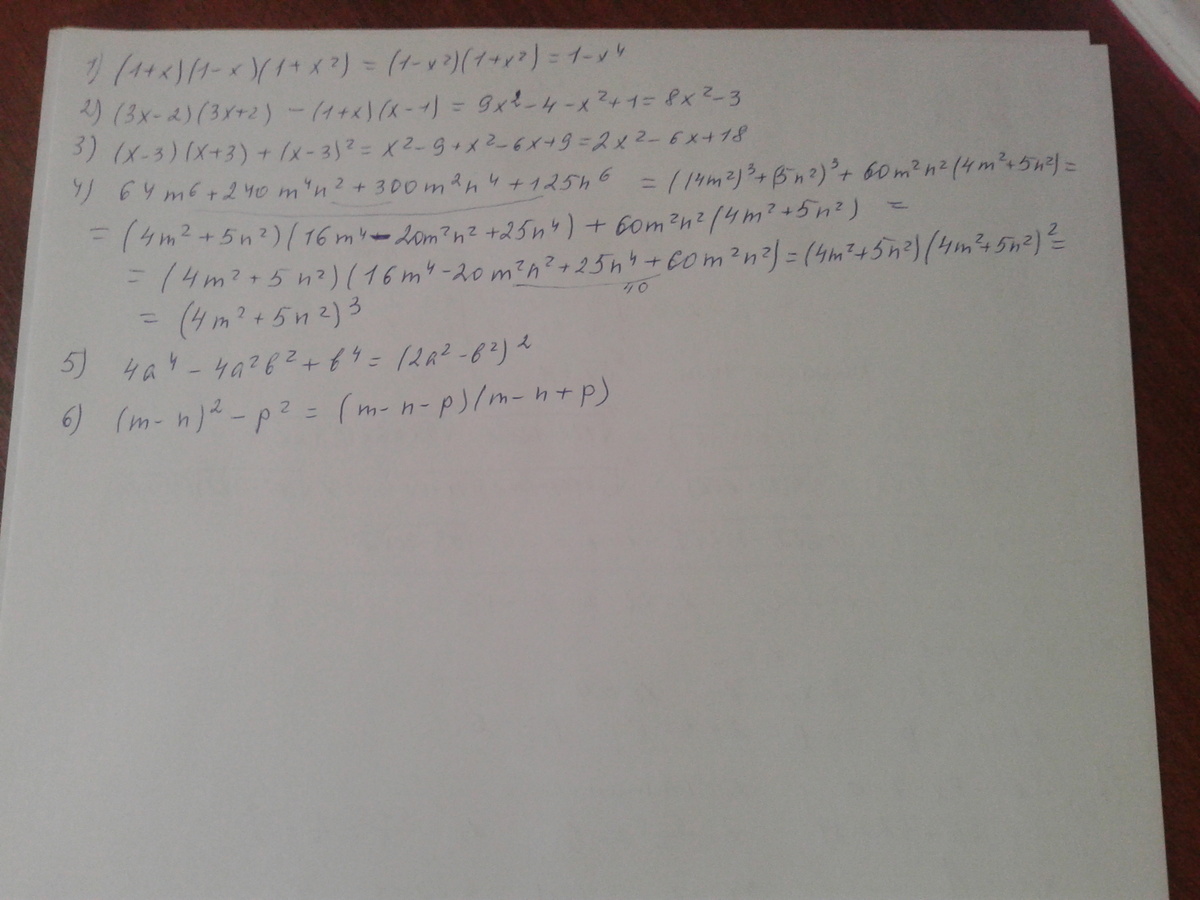 1) (1+x)(1-x)(1+x²) = (1-x²)(1+x²) = 1-x⁴
2) (3x-2)(3x+2) - (1+x)(x-1) = 9x²-4-x²+1 = 8x²-3
3) (x-3)(x+3) + (x-3)² = x²-9+x²-6x+9 = 2x²-6x+18
4) 64m⁶+240m⁴n²+300m²n⁴+125n⁶ = ((4m²)³+(5n²)³+60m²n²(4m²+5n²) =
= (4m²+5n²)(16m⁴-20m²n²+25n⁴) + 60m²n²(4m²+5n²) =
= (4m²+5n²)(16m⁴-20m²n²+25n⁴+60m²n²) = (4m²+5n²)(4m²+5n²)² =
40
= (4m²+5n²)³
5) 4a⁴-4a²b²+b⁴ = (2a²-b²)²
6) (m-n)²-p² = (m-n-p)(m-n+p)